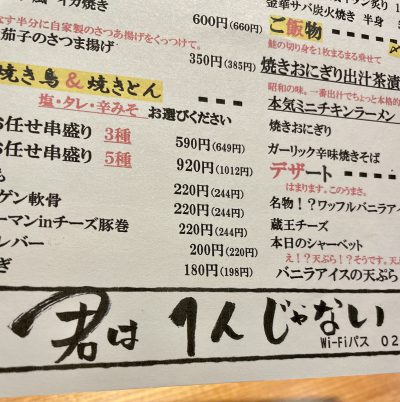 風 イカ焼き
600円(660円)
なす半分に自家製のさつあ揚げをくっつけて。
茄子のさつま揚げ
350円(385円)
焼き鳥&焼きとん
塩・タレ・辛みそ お選びください
お任せ串盛り 3種 590円(649円)
お任せ串盛り 5種 920円(1012円)
も 220円(244円)
ゲン軟骨 220円(244円)
ーマンinチーズ豚巻 220円(244円)
レバー 200円(220円)
ぎ 180円(198円)
金華サバ炭火焼き 半身
ご飯物
鮭の切り身を1枚まるまる乗せて
焼きおにぎり出汁茶漬
昭和の味。一番出汁でちょっと本格的
本気ミニチキンラーメン
焼きおにぎり
ガーリック辛味焼きそば
デザート
はまります。このうまさ。
名物!?ワッフルバニラアイ
蔵王チーズ
本日のシャーベット
え!?天ぷら!?そうです。天ぷ
バニラアイスの天ぷら
君は1人じゃない
Wi-Fiパス 02